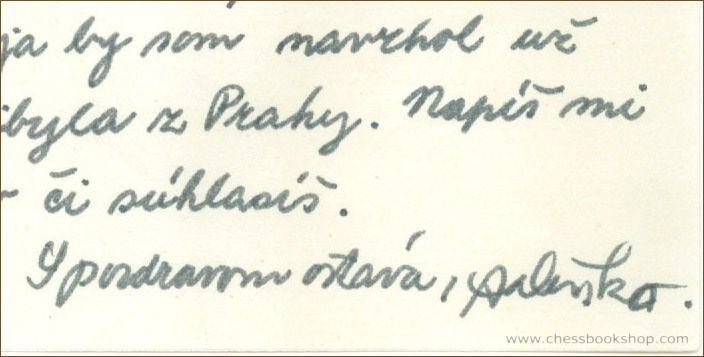 ja by som navrhol už
ibyla z Prahy. Napíš mi
či súhlasíš.
S pozdravom ostáva,
www.chessbookshop.com